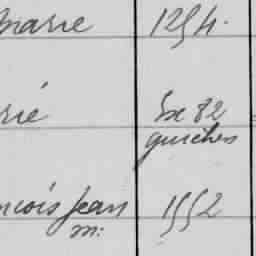 Marie 1254.
rié Ex 82
guiches
ncois Jean 1552
m: